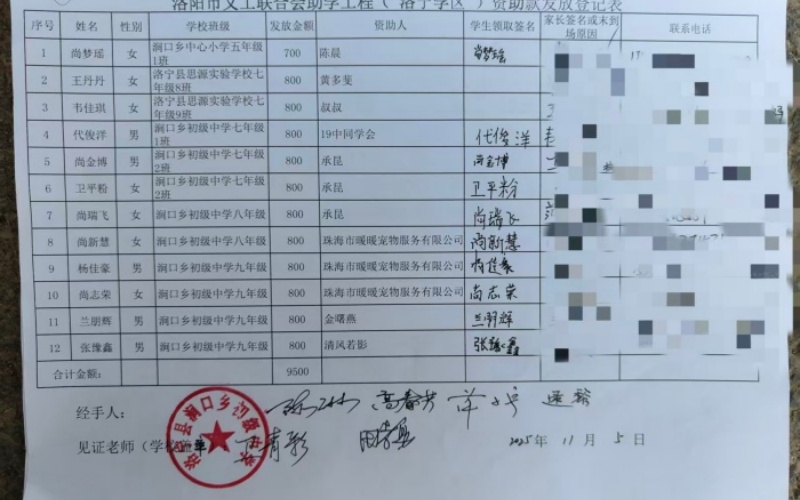 洛阳市义工联合会助学工程（ 洛宁学区 ）资助款发放登记表
序号 姓名 性别 学校班级 发放金额 资助人 学生领取签名 家长签名或未到场原因 联系电话
1 尚梦瑶 女 涧口乡中心小学五年级1班 700 陈晨 尚梦瑶
2 王丹丹 女 洛宁县思源实验学校七年级8班 800 黄多斐
3 韦佳琪 女 洛宁县思源实验学校七年级9班 800 叔叔
4 代俊洋 男 涧口乡初级中学七年级1班 800 19中同学会 代俊洋
5 尚金博 男 涧口乡初级中学七年级2班 800 承昆 尚金博
6 卫平粉 女 涧口乡初级中学七年级2班 800 承昆 卫平粉
7 尚瑞飞 女 涧口乡初级中学八年级 800 承昆 尚瑞飞
8 尚新慧 女 涧口乡初级中学八年级 800 珠海市暖暖宠物服务有限公司 尚新慧
9 杨佳豪 男 涧口乡初级中学九年级 800 珠海市暖暖宠物服务有限公司 杨佳豪
10 尚志荣 女 涧口乡初级中学九年级 800 珠海市暖暖宠物服务有限公司 尚志荣
11 兰朋辉 男 涧口乡初级中学九年级 800 金曙燕 兰朋辉
12 张豫鑫 男 涧口乡初级中学九年级 800 清风若影 张豫鑫
合计金额： 9500
经手人：
见证老师（学校
2025年 11月 5日